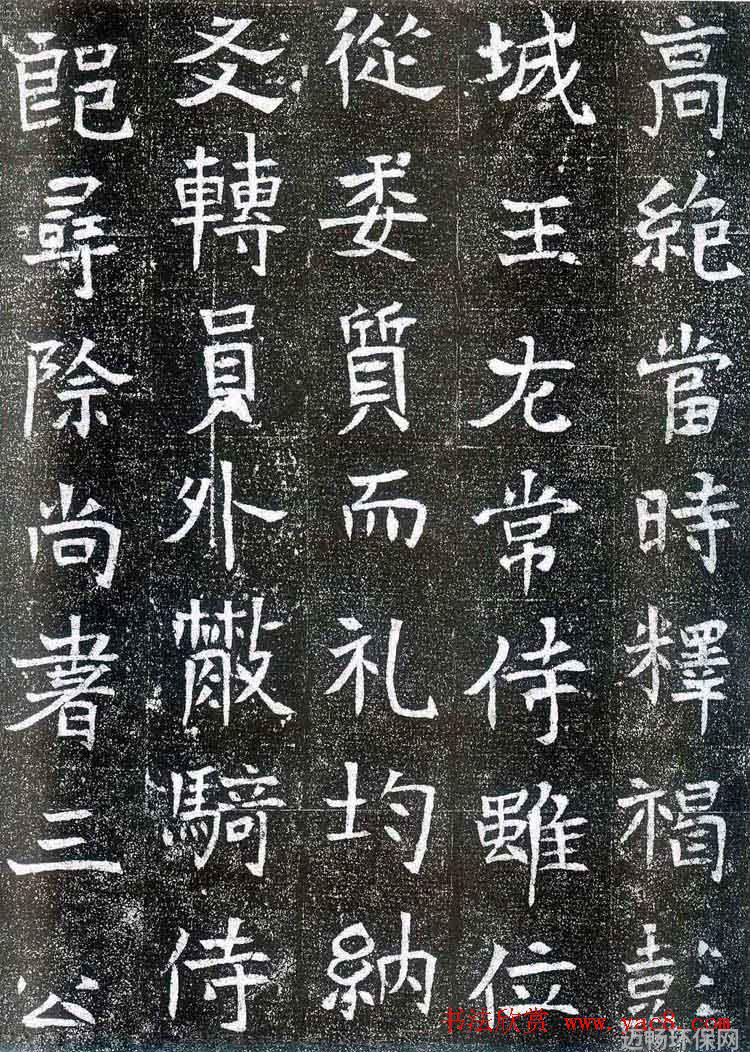 高絶當時釋褐彭
城王尢常侍雖位
從委質而礼均納
叐轉員外散騎侍
郎尋除尚書三公
书法欣赏 www.yac8.com
迈畅环保网